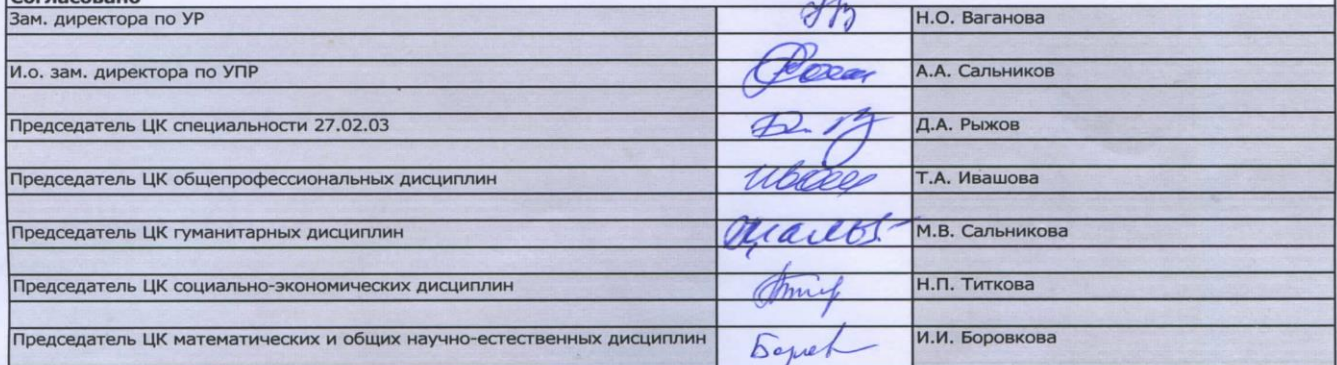 Согласовано
Зам. директора по УР Н.О. Ваганова
И.о. зам. директора по УПР А.А. Сальников
Председатель ЦК специальности 27.02.03 Д.А. Рыжов
Председатель ЦК общепрофессиональных дисциплин Т.А. Ивашова
Председатель ЦК гуманитарных дисциплин М.В. Сальникова
Председатель ЦК социально-экономических дисциплин Н.П. Титкова
Председатель ЦК математических и общих научно-естественных дисциплин И.И. Боровкова